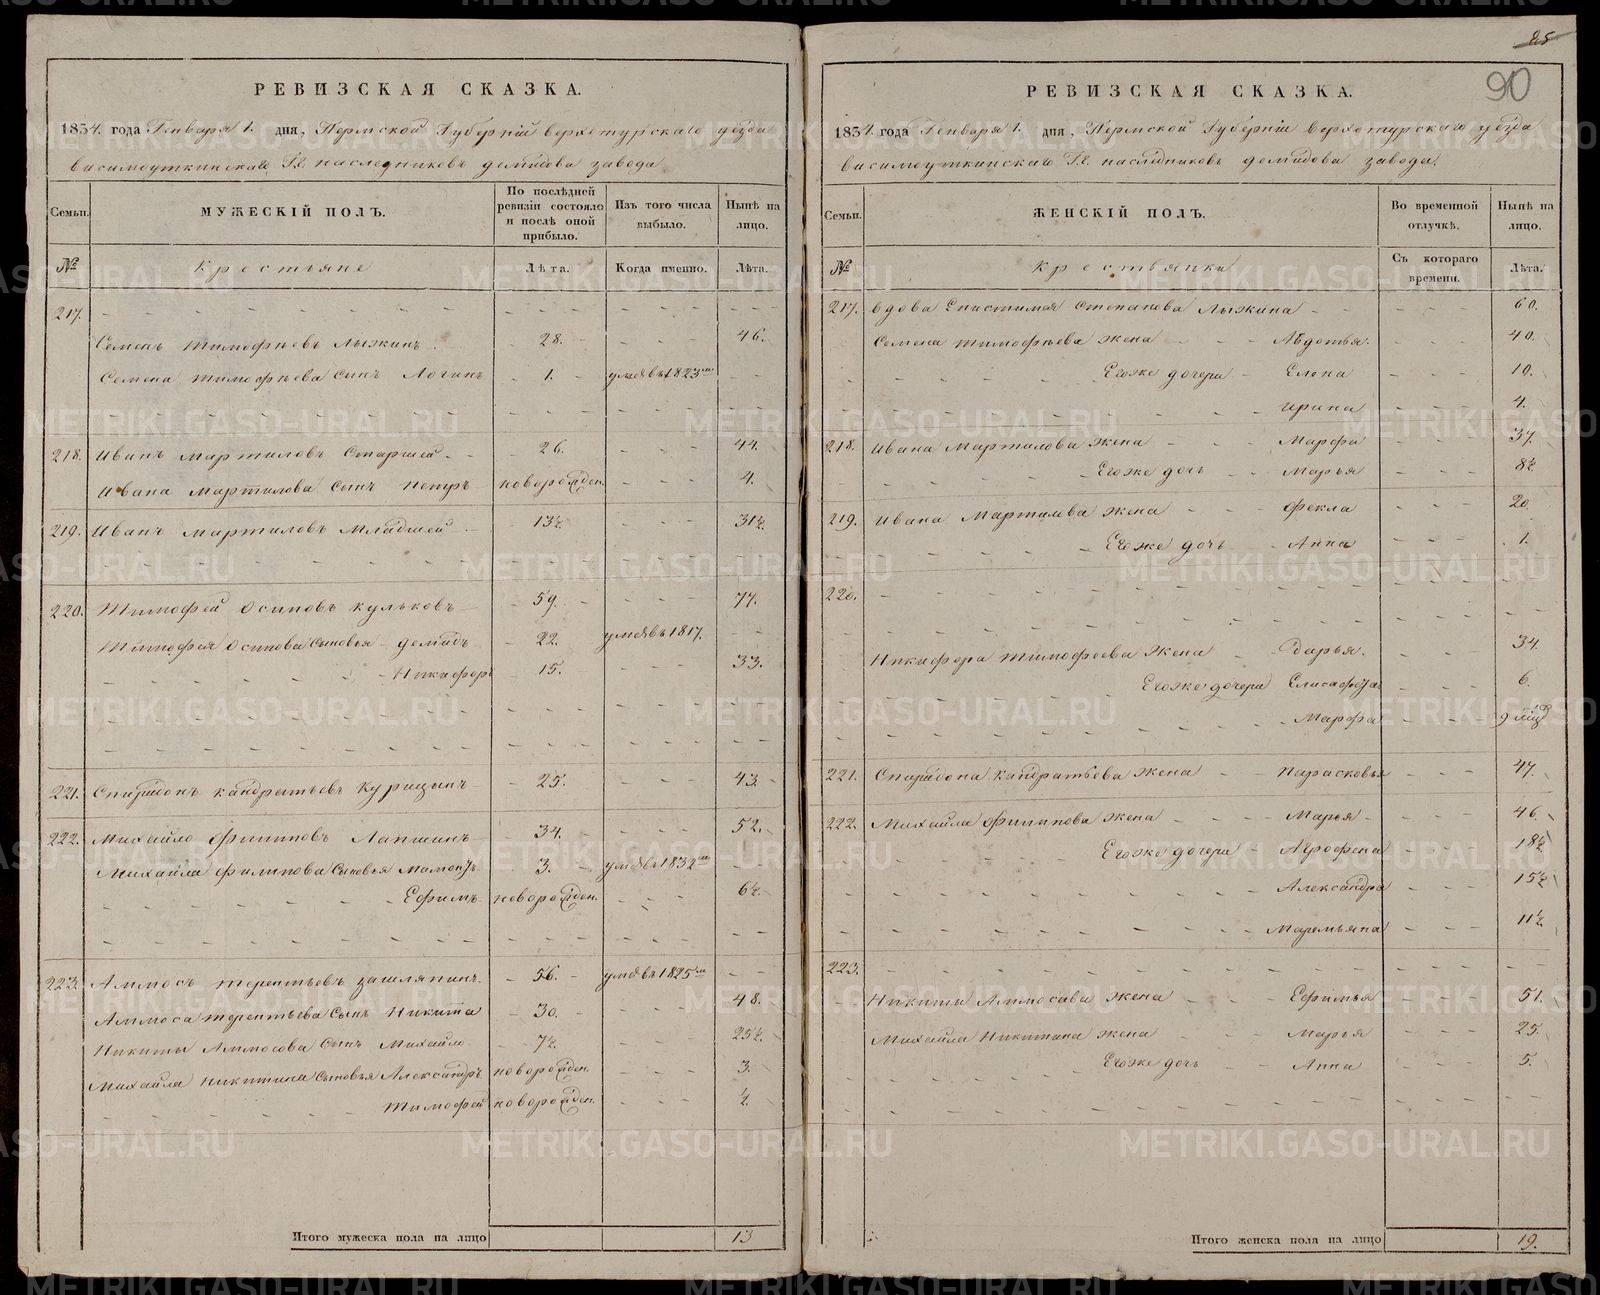 85
90
РЕВИЗСКАЯ СКАЗКА.
1834. года Генваря 1. дня, Пермской Губернiи верхотурскаго уезда
висимоуткинскаго Гг. наследниковъ демидова завода
Семьи.
МУЖЕСКІЙ ПОЛЪ.
По послѣдней ревизіи состояло и послѣ оной прибыло.
Изъ того числа выбыло.
Нынѣ на лицо.
№
Крестьяне
Лѣта.
Когда именно.
Лѣта.
217.
Семенъ тимофѣевъ Лыжинъ 28. 46.
Семена тимофѣева сынъ Логинъ 1. умѣ въ 1823мъ
218. Иванъ Мартиловъ Старшей 26. 44.
Ивана Мартилова сынъ Петръ новорожден. 4.
219. Иванъ мартиловъ Младшей 13½ 31½
220. Тимофей Осиповъ Кульковъ 59. 77.
Тимофея Осипова Сыновья демидъ 22. умѣ въ 1817.
Никифоръ 15. 33.
221. Спиридонъ кандратьевъ Курицынъ 25. 43.
222. Михайло Филиповъ Лапшинъ 34. 52.
Михайла Филипова Сыновья Мамонтъ 3. умѣ въ 1832мъ
Ефимъ новорожден. 6½
223. Аммосъ терентьевъ зашляпинъ 56. умѣ въ 1825мъ
Аммоса терентьева Сынъ Никита 30. 48.
Никиты Аммосова сынъ Михайло 7½ 25½
Михайла никитина Сыновья Александръ новорожден. 3.
Тимофей новорожден. ½
Итого мужеска пола на лицо 13
РЕВИЗСКАЯ СКАЗКА.
1834. года Генваря 1. дня, Пермской Губернiи верхотурскаго уезда
висимоуткинскаго Гг. наслѣдниковъ демидова завода.
Семьи.
ЖЕНСКІЙ ПОЛЪ.
Во временной отлучкѣ.
Нынѣ на лицо.
№
Крестьянки
Съ котораго времени.
Лѣта.
217. вдова Епистимия Степанова Лыжина 60.
Семена тимофѣева жена Авдотья. 40.
Егоже дочери Елена 10.
ирина 4.
218. Ивана Мартилова жена Марфа 37.
Егоже дочь Марья 8½
219. Ивана Мартилова жена Фекла 20.
Егоже дочь Анна 1.
220.
Никифора тимофеева жена дарья. 34.
Егоже дочери Елисафета 6.
Марфа 9 мѣс
221. Спиридона кандратьева жена Парасковья 47.
222. Михайла Филипова жена Марья 46.
Егоже дочери Агрофена 18½
Александра 15½
Маремьяна 11½
223.
Никиты Аммосова жена Ефимья 51.
Михайла Никитина жена Марья 25.
Егоже дочь Анна 5.
Итого женска пола на лицо 19.
METRIKI.GASO-URAL.RU